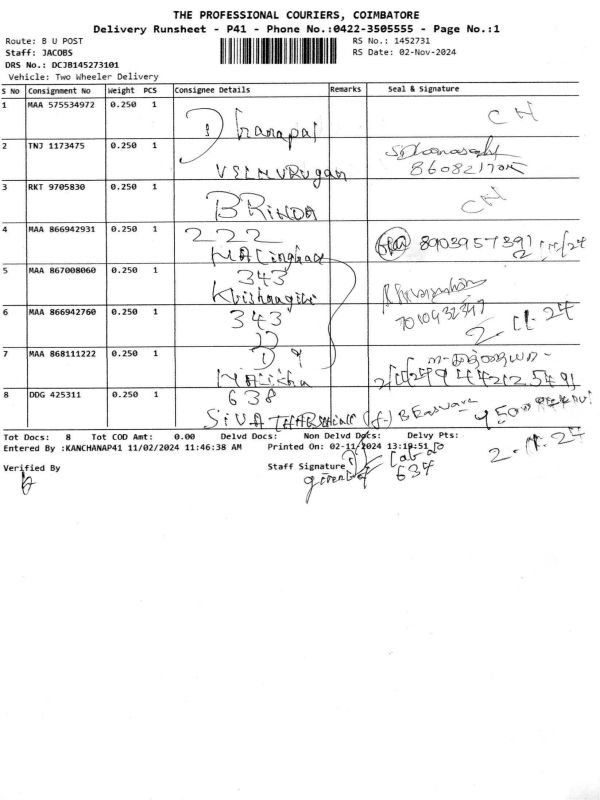 THE PROFESSIONAL COURIERS, COIMBATORE
Delivery Runsheet - P41 - Phone No.:0422-3505555 - Page No.:1
Route: B U POST RS No.: 1452731
Staff: JACOBS RS Date: 02-Nov-2024
DRS No.: DCJB145273101
Vehicle: Two Wheeler Delivery
S No Consignment No Weight PCS Consignee Details Remarks Seal & Signature
1 MAA 575534972 0.250 1 Dhanapal CH
2 TNJ 1173475 0.250 1
VELMURUgan
3 RKT 9705830 0.250 1 BRINDA CH
4 MAA 866942931 0.250 1 222 8903957391
5 MAA 867008060 0.250 1 343
6 MAA 866942760 0.250 1 343 7010932347
2-11-24
7 MAA 868111222 0.250 1 D 9
8 DDG 425311 0.250 1 638
SIVA
Tot Docs: 8 Tot COD Amt: 0.00 Delvd Docs: Non Delvd Docs: Delvy Pts:
Entered By :KANCHANAP41 11/02/2024 11:46:38 AM Printed On: 02-11-2024 13:19:51
2-11-24
Verified By Staff Signature 634